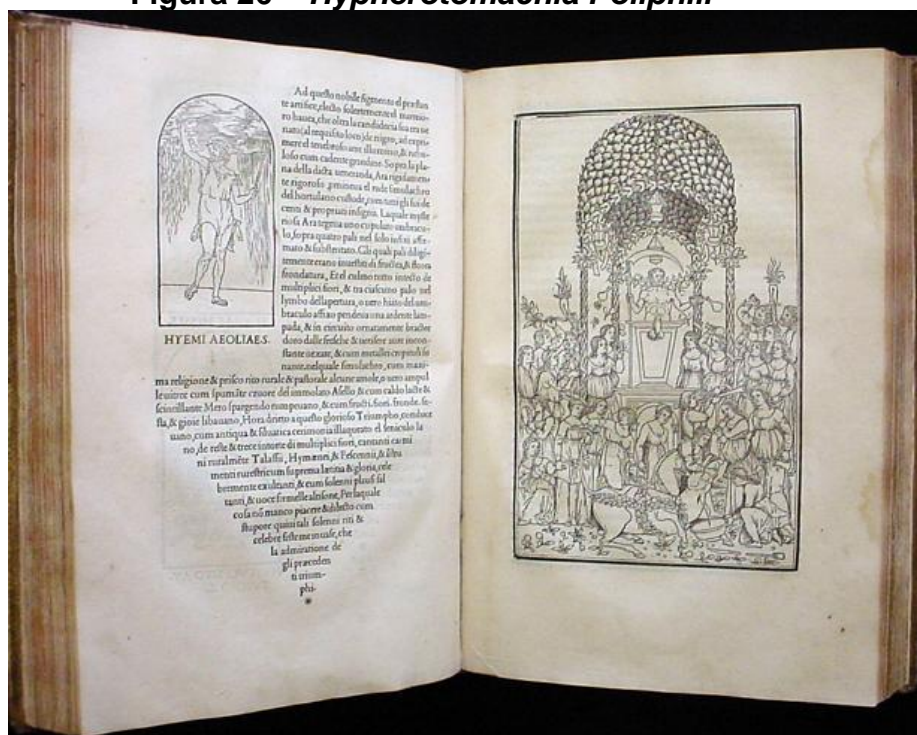 Figura – Hypnerotomachia Poliphili
Ad questo nobile figmento el præstan
te artifice, electo solertemente el marmo-
ro hauea, che oltra la candidecia sea era ue
nato (al requisito loco) de nigro, ad expri-
mere el tenebroso aere illumino, & nebu-
loso cum cadente grandine. Sopra la pla-
na della dicta ueneranda Ara rigidamen-
te rigoroso el rude simulachro
del hortulano custode, cum tutti gli sui de
centi & propriati insignii. Laquale myste
riosa Ara tegeua uno cupulato umbracu-
lo, sopra quatro pali nel solo infixi affir-
mato & substentato. Gli quali pali diligen
temente erano inuestiti di fructea, & florea
frondatura, Et el culmo tutto intecto de
multiplici fiori, & tra ciascuno palo nel
lymbo dellapertura, o uero hiato del um-
braculo affixo pendeua una ardente lam-
pada, & in circuito ornatamente bractee
doro dalle fresche & uerifere aure incon-
stante uexate, & cum metallei crepituli so
nante. nelquale simulachro, cum maxi-
HYEMI AEOLIAE.S.
ma religione & prisco rito rurale & pastorale alcune amole, o uero ampul
le uitree cum spumante cruore del immolato Asello & cum caldo lacte &
scintillante Mero spargendo rumpeuano, & cum fructi. fiori. fronde. fe-
sta, & gioie libauano, Hora drieto a questo glorioso Triumpho, conduce
uano, cum antiqua & siluatica cerimonia illaqueato el seniculo Ia
no, de reste & trece intorte di multiplici fiori, cantanti carmi
ni ruralmẽte Talassii, Hymænei, & Fescennii, & instru
menti rurestri cum suprema lætitia & gloria, cele
bremente exultanti, & cum solenni plausi sal
tanti, & uoce fœmelle altisone, Per laquale
cosa nõ manco piacere & dilecto cum
stupore quiui tali solenni riti &
celebre feste me inuase, che
la admiratione de
gli præceden
ti trium-
phi.
*